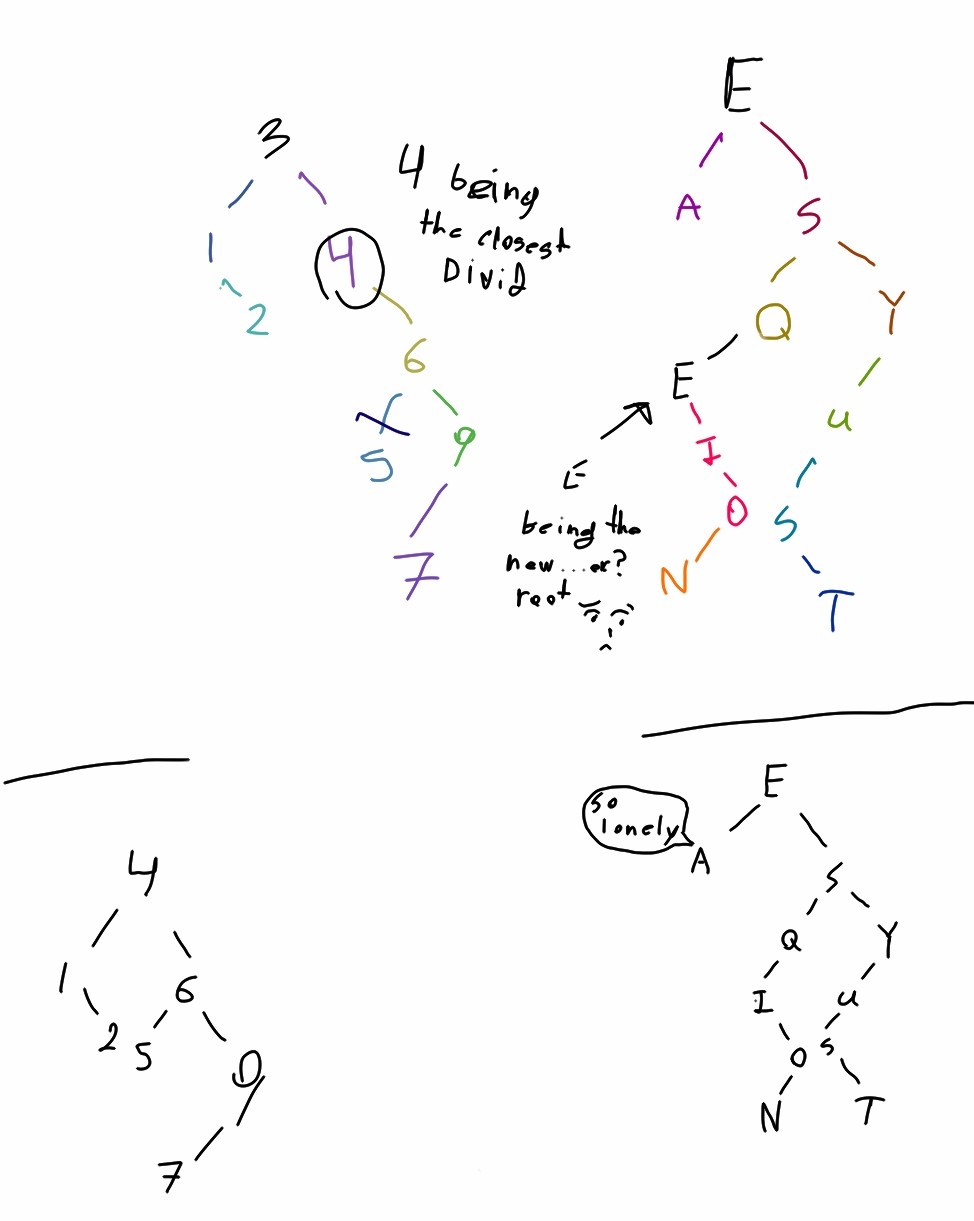 3
1
4
2
6
5
9
7
4 being
the closest
Divid
E
A
S
Q
Y
E
U
I
O
S
N
T
E
being the
new...er?
root
4
1
6
2
5
9
7
so
lonely
E
A
S
Q
Y
I
U
O
S
N
T